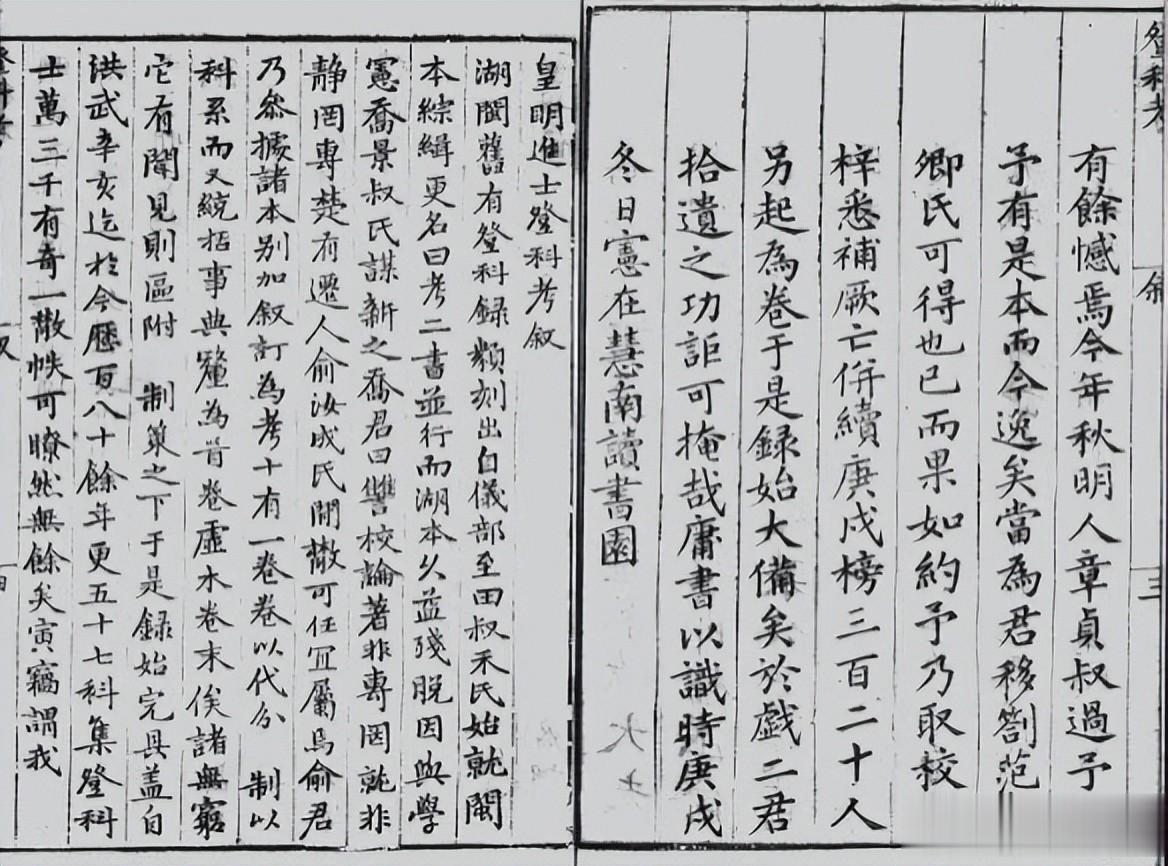 登科考
叙
三
有餘憾焉今年秋明人章貞叔過予
予有是本而今逸矣當為君移劄范
卿氏可得也已而果如約予乃取校
梓悉補厥亡併續庚戌榜三百二十人
另起為卷于是録始大備矣於戲二君
拾遺之功詎可掩哉庸書以識時庚戌
冬日寔在慧南讀書園
皇明進士登科考叙
湖閩舊有登科録類刻出自儀部至田叔禾氏始就閩
本綜緝更名曰考二書並行而湖本久益殘脱因與學
憲喬景叔氏謀新之喬君曰讐校論著非專罔就非
静罔專楚有遷人俞汝成氏開敞可任宜屬焉俞君
乃叅據諸本别加叙訂為考十有一卷卷以代分 制以
科系而又統括事典釐為首卷虚木卷末俟諸無窮
它有聞見則區附 制策之下于是録始完具盖自
洪武辛亥迄於今歷百八十餘年更五十七科集登科
士萬三千有奇一散帙可瞭然無餘矣寅竊謂我